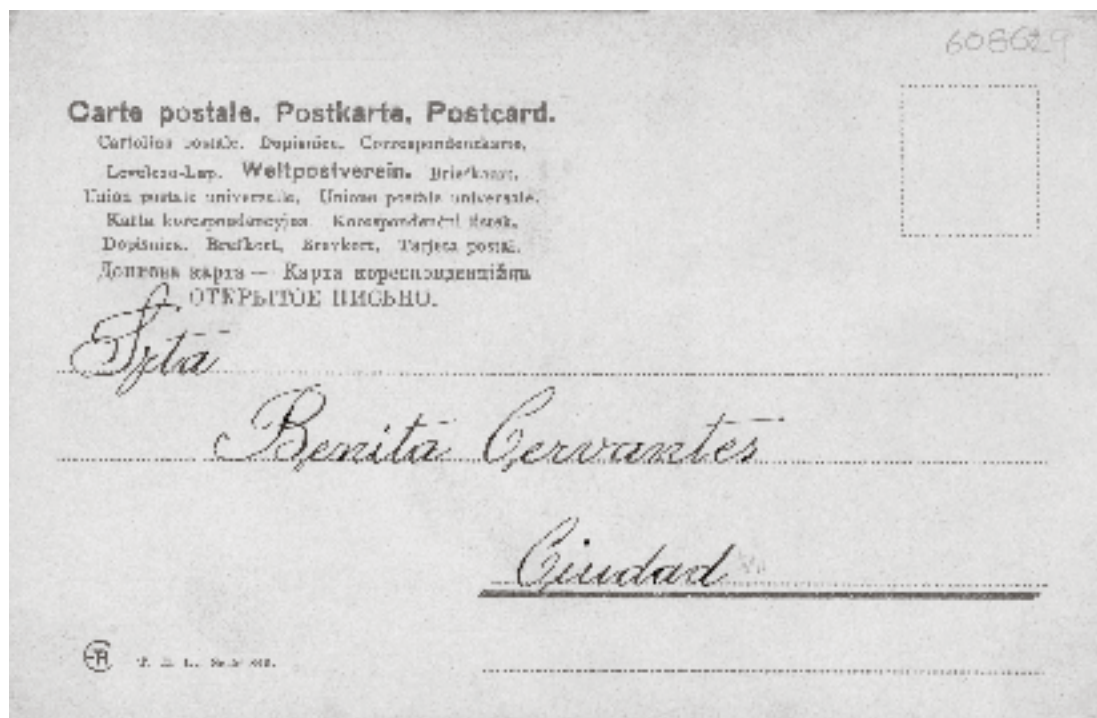 608629
Carte postale. Postkarte. Postcard.
Cartolina postale. Dopisnica. Correspondenzkarte.
Levelezo-Lap. Weltpostverein. Briefkaart.
Union postale universelle. Unione postale universale.
Karta korespondencyjna. Korespondenční lístek.
Dopisnica. Brefkort. Brevkort. Tarjeta postal.
карта — Карта
ОТКРЫТОЕ ПИСЬМО.
Srta
Benita Cervantes
Ciudad